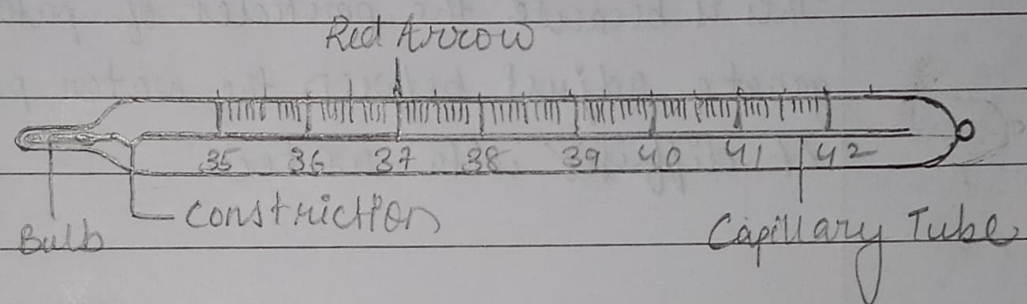 Red Arrow
35 36 37 38 39 40 41 42
Constriction
Bulb
Capillary Tube